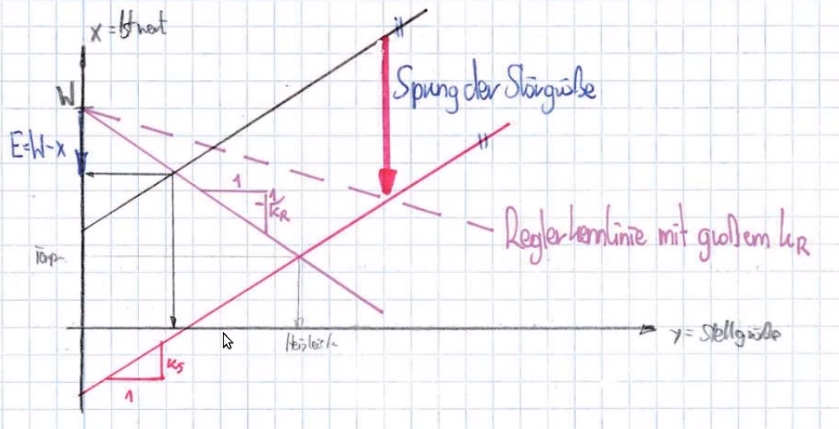 x = Istwert
W
E=W-x
Sprung der Störgröße
1
-1/kR
Reglerkennlinie mit großem kR
Temp.
Heizleistg.
y = Stellgröße
ks
1